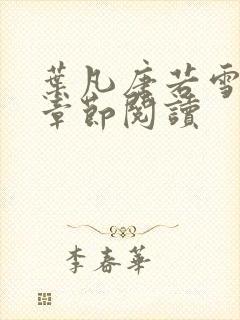 葉凡唐若雪
章節閱讀
李春華